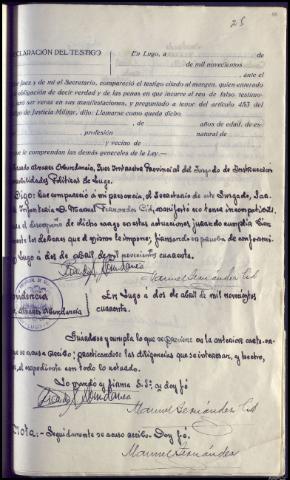 25
DECLARACIÓN DEL TESTIGO
En Lugo, a de
de mil novecientos
, ante el
Juez y de mí el Secretario, compareció el testigo citado al margen, quien enterado
obligación de decir verdad y de las penas en que incurre el reo de falso testimo-
rará ser veraz en sus manifestaciones, y preguntado a tenor del artículo 453 del
go de Justicia Militar, dijo: Llamarse como queda dicho
, de años de edad, de es-
, profesión natural de
y vecino de
que le comprendan las demás generales de la Ley.—
Alvarez Abundancia, Juez Instructor Provincial del Juzgado de Instrucción
sabilidades Políticas de Lugo.
Digo: Que compareció a mi presencia, el Secretario de este Juzgado,
Infantería D. Manuel Fernandez Cid, manifestó no tener incompatibili-
el desempeño de dicho cargo en estas actuaciones, jurando cumplir bien
te los deberes que el mismo le impone, firmando en prueba de conformi-
Lugo a dos de abril de mil novecientos cuarenta.
Manuel Fernández Cid
En Lugo a dos de abril de mil novecientos
cuarenta.
Alvarez Abundancia
Guárdese y cumpla lo que se previene en la anterior carta-orden
se acusa recibo; practicándose las diligencias que se interesan, y hecho,
el expediente con todo lo actuado.
Lo mandó y firma S.Sª. doy fé
Manuel Fernández Cid
Nota:- Seguidamente se acusó recibo. Doy fé.
Manuel Fernández